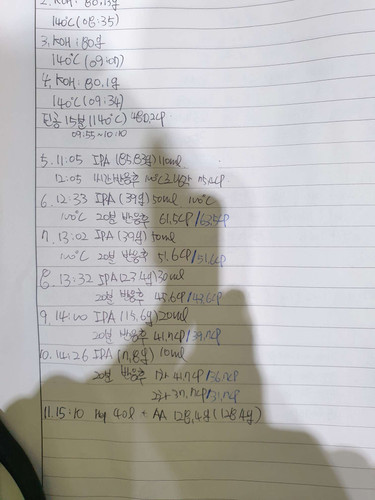 2. KOH : 80.13g
140℃ (08:35)
3. KOH : 80g
140℃ (09:07)
4. KOH : 80.1g
140℃ (09:34)
진공 15분 (140℃) 480.2cP
09:55~10:10
5. 11:05 IPA (85.83g) 110ml
12:05
6. 12:33 IPA (39g) 50ml 100℃
100℃ 20분 반응후 61.5cP/63.5cP
7. 13:02 IPA (39g) 50ml
100℃ 20분 반응후 51.6cP/51.6cP
8. 13:32 IPA (23.4g) 30ml
20분 반응후 45.6cP/43.6cP
9. 14:00 IPA (15.6g) 20ml
20분 반응후 41.7cP/39.7cP
10. 14:26 IPA (7.8g) 10ml
20분 반응후 1차 41.7cP/36.7cP
2차 37.7cP/37.7cP
11. 15:10 40l + AA 128.4g (128.4g)